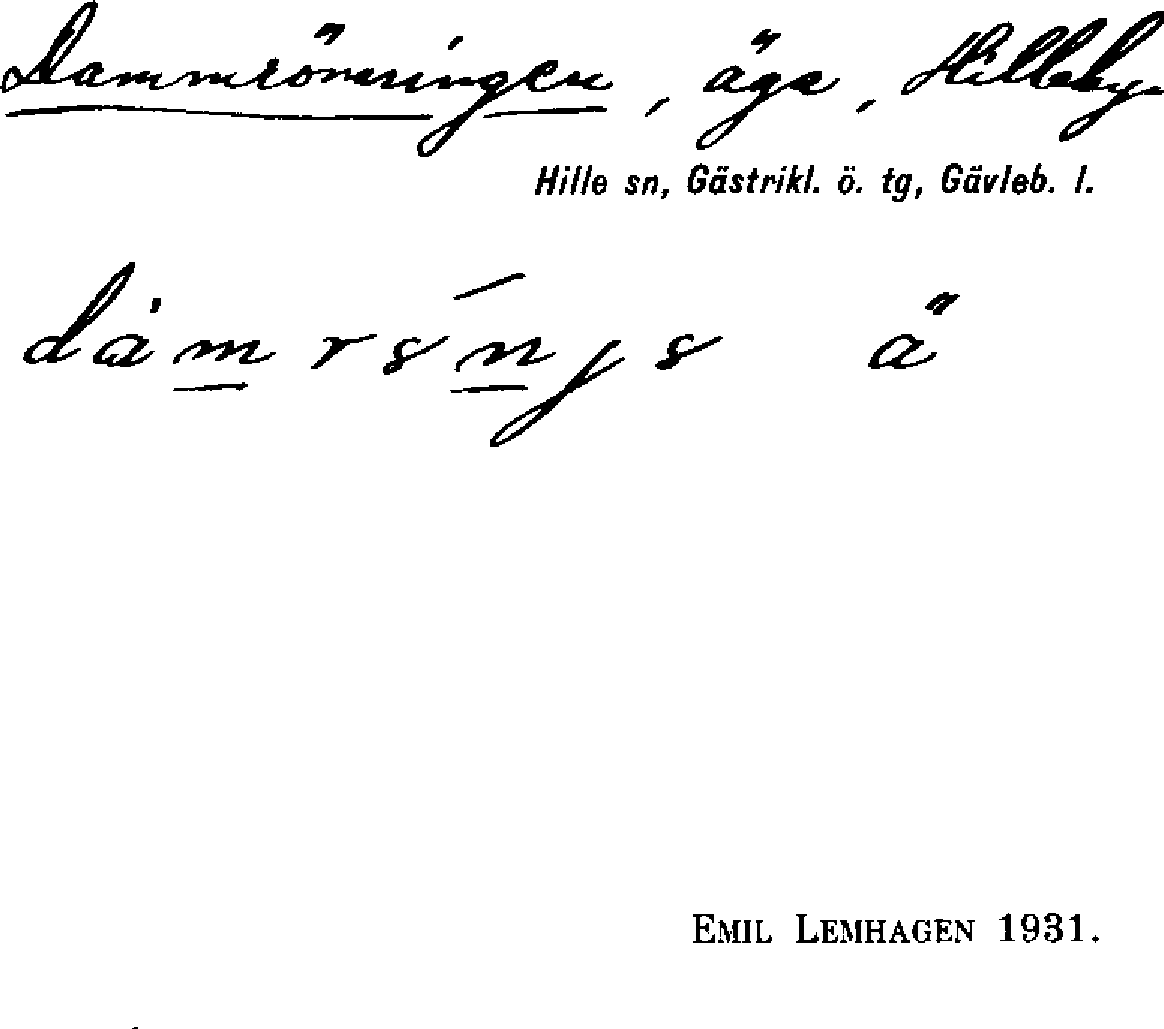 Dammrönningen, äga, Hilleby.
Hille sn, Gästrikl. ö. tg, Gävleb. l.
EMIL LEMHAGEN 1931.